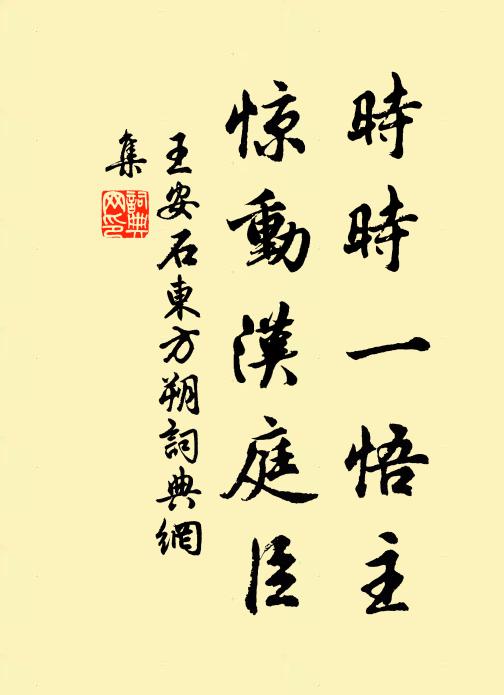 時時一悟主
惊動漢庭臣
王安石東方朔詞典網
集
詞典网印